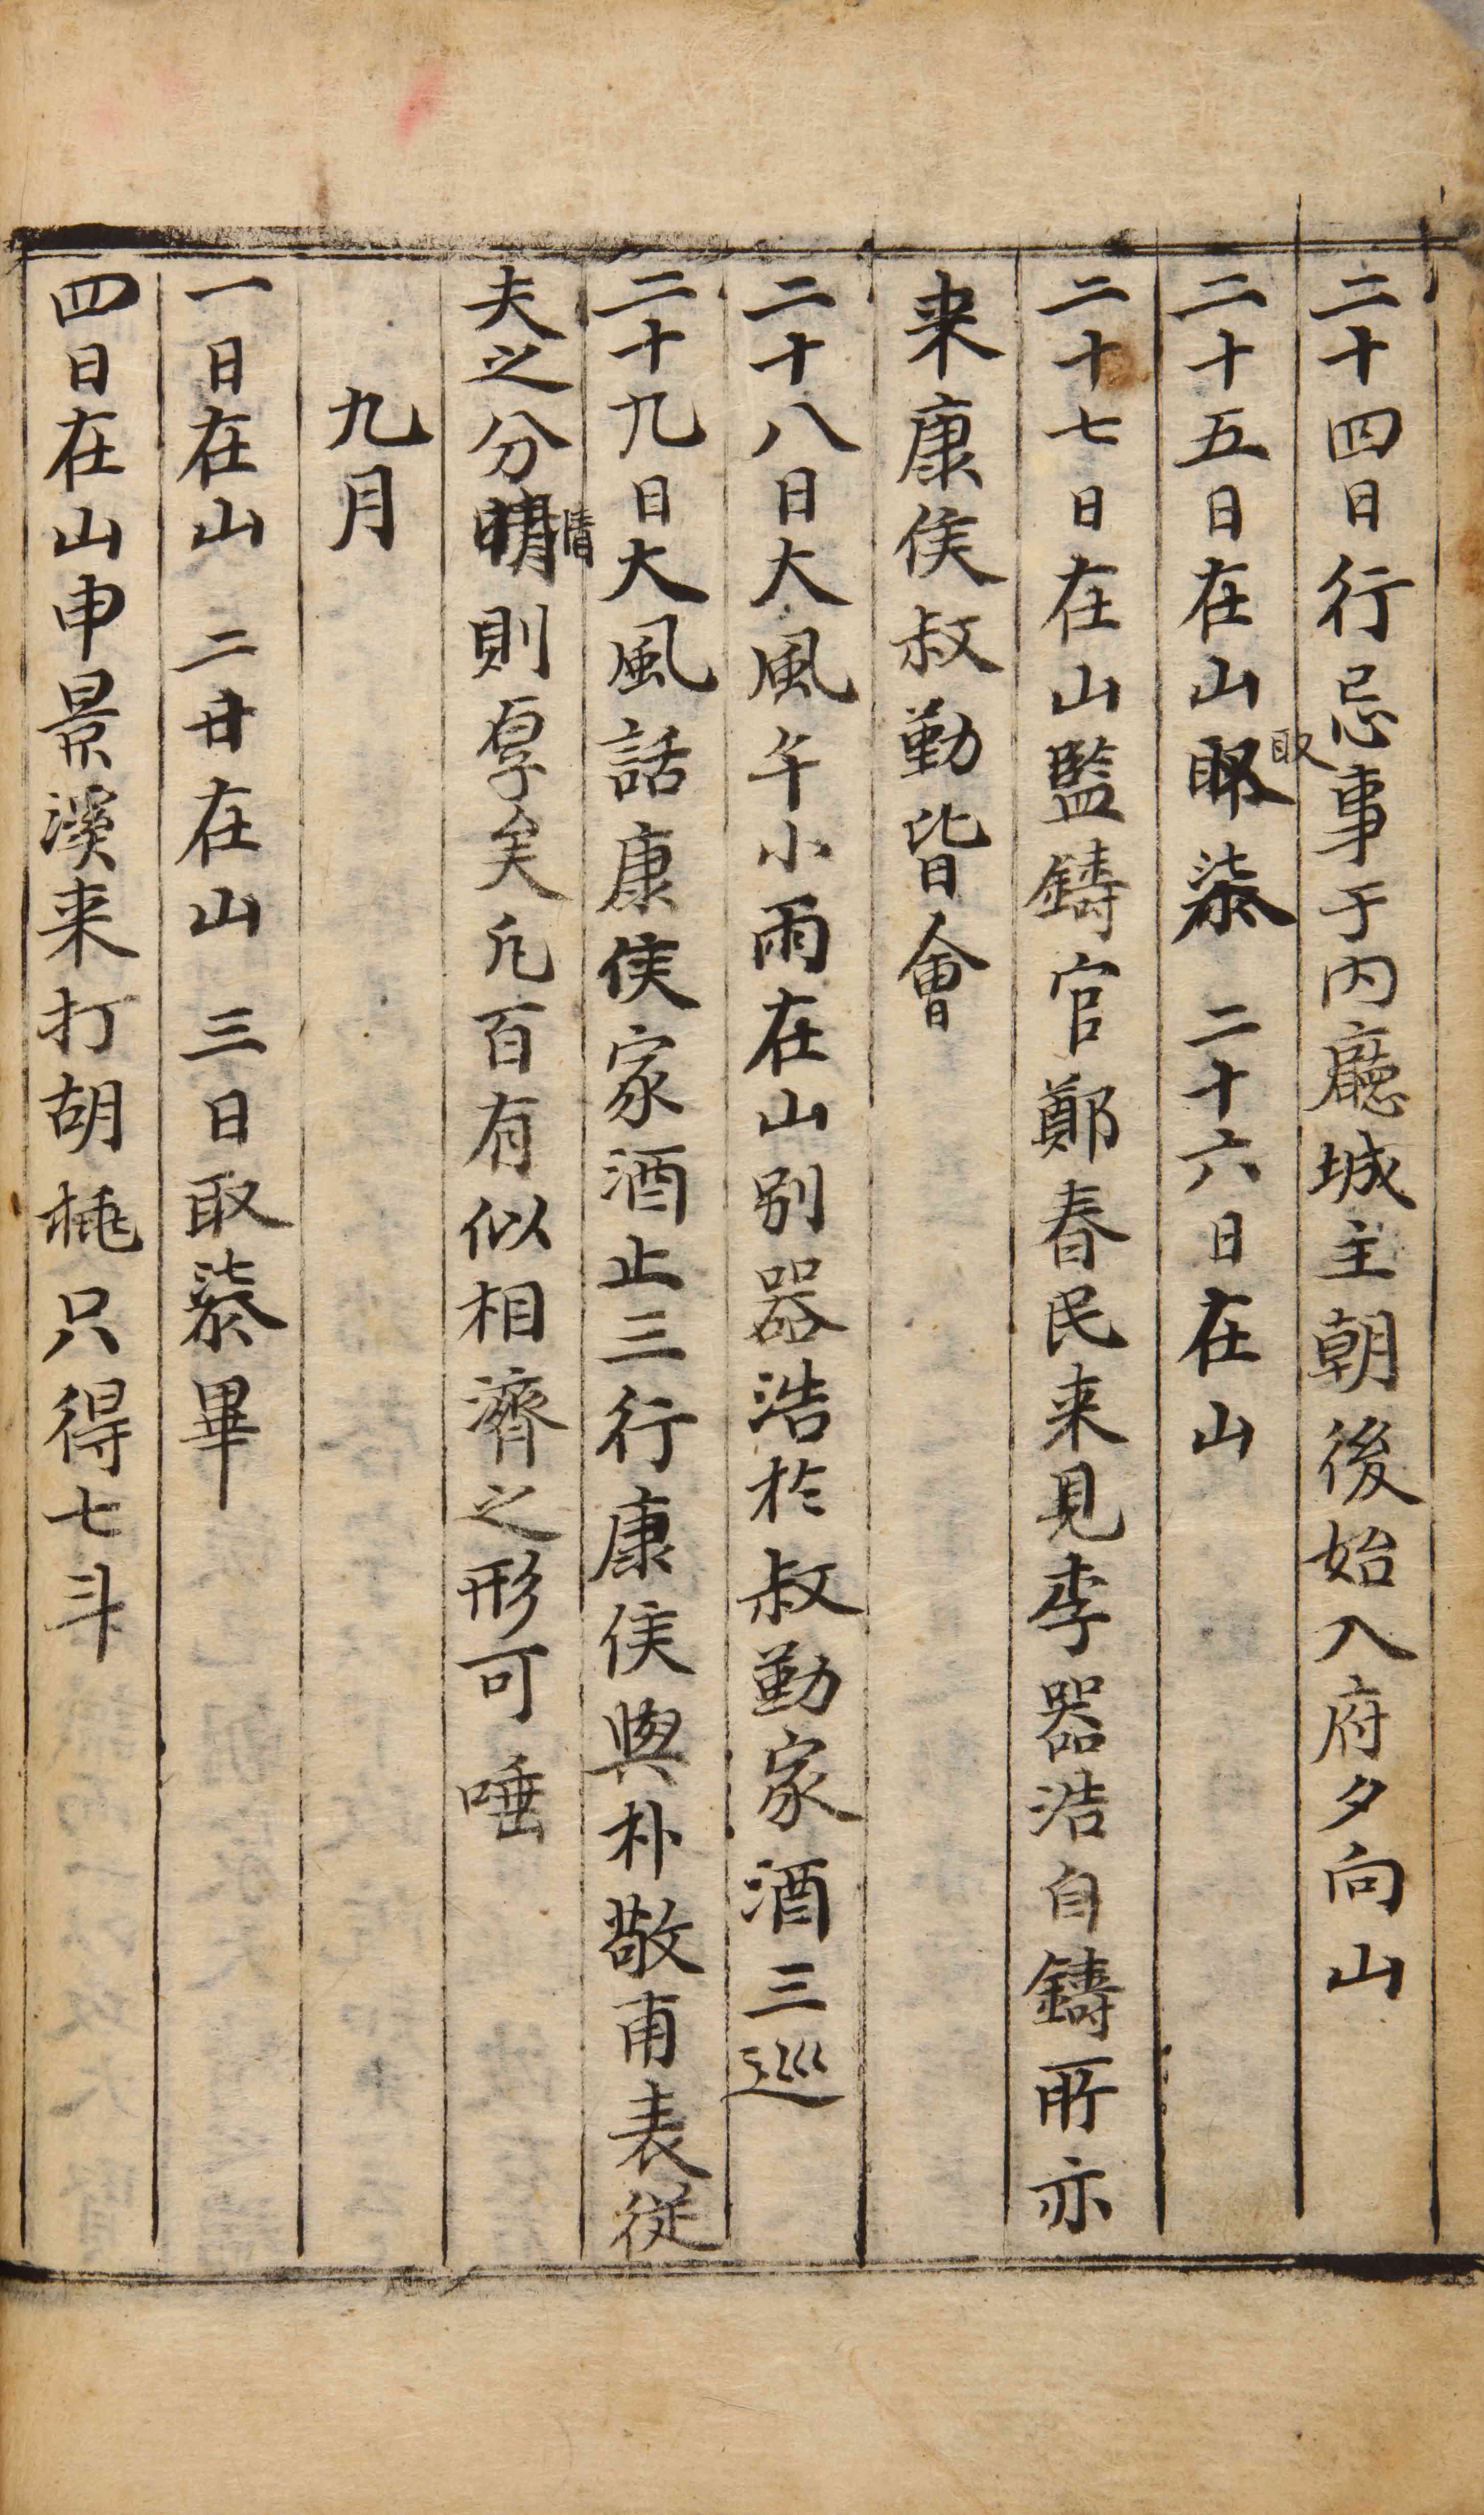 二十四日行忌事于内廳城主朝後始入府夕向山
二十五日在山取柒 二十六日在山
取
二十七日在山監鑄官鄭春民来見李器浩自鑄所亦
来康侯叔勤皆會
二十八日大風午小雨在山別器浩於叔勤家酒三巡
二十九日大風話康侯家酒止三行康侯與朴敬甫表從
夫之分情則厚矣凡百有似相濟之形可唾
情
九月
一日在山 二日在山 三日取柒畢
四日在山申景溪来打胡桃只得七斗